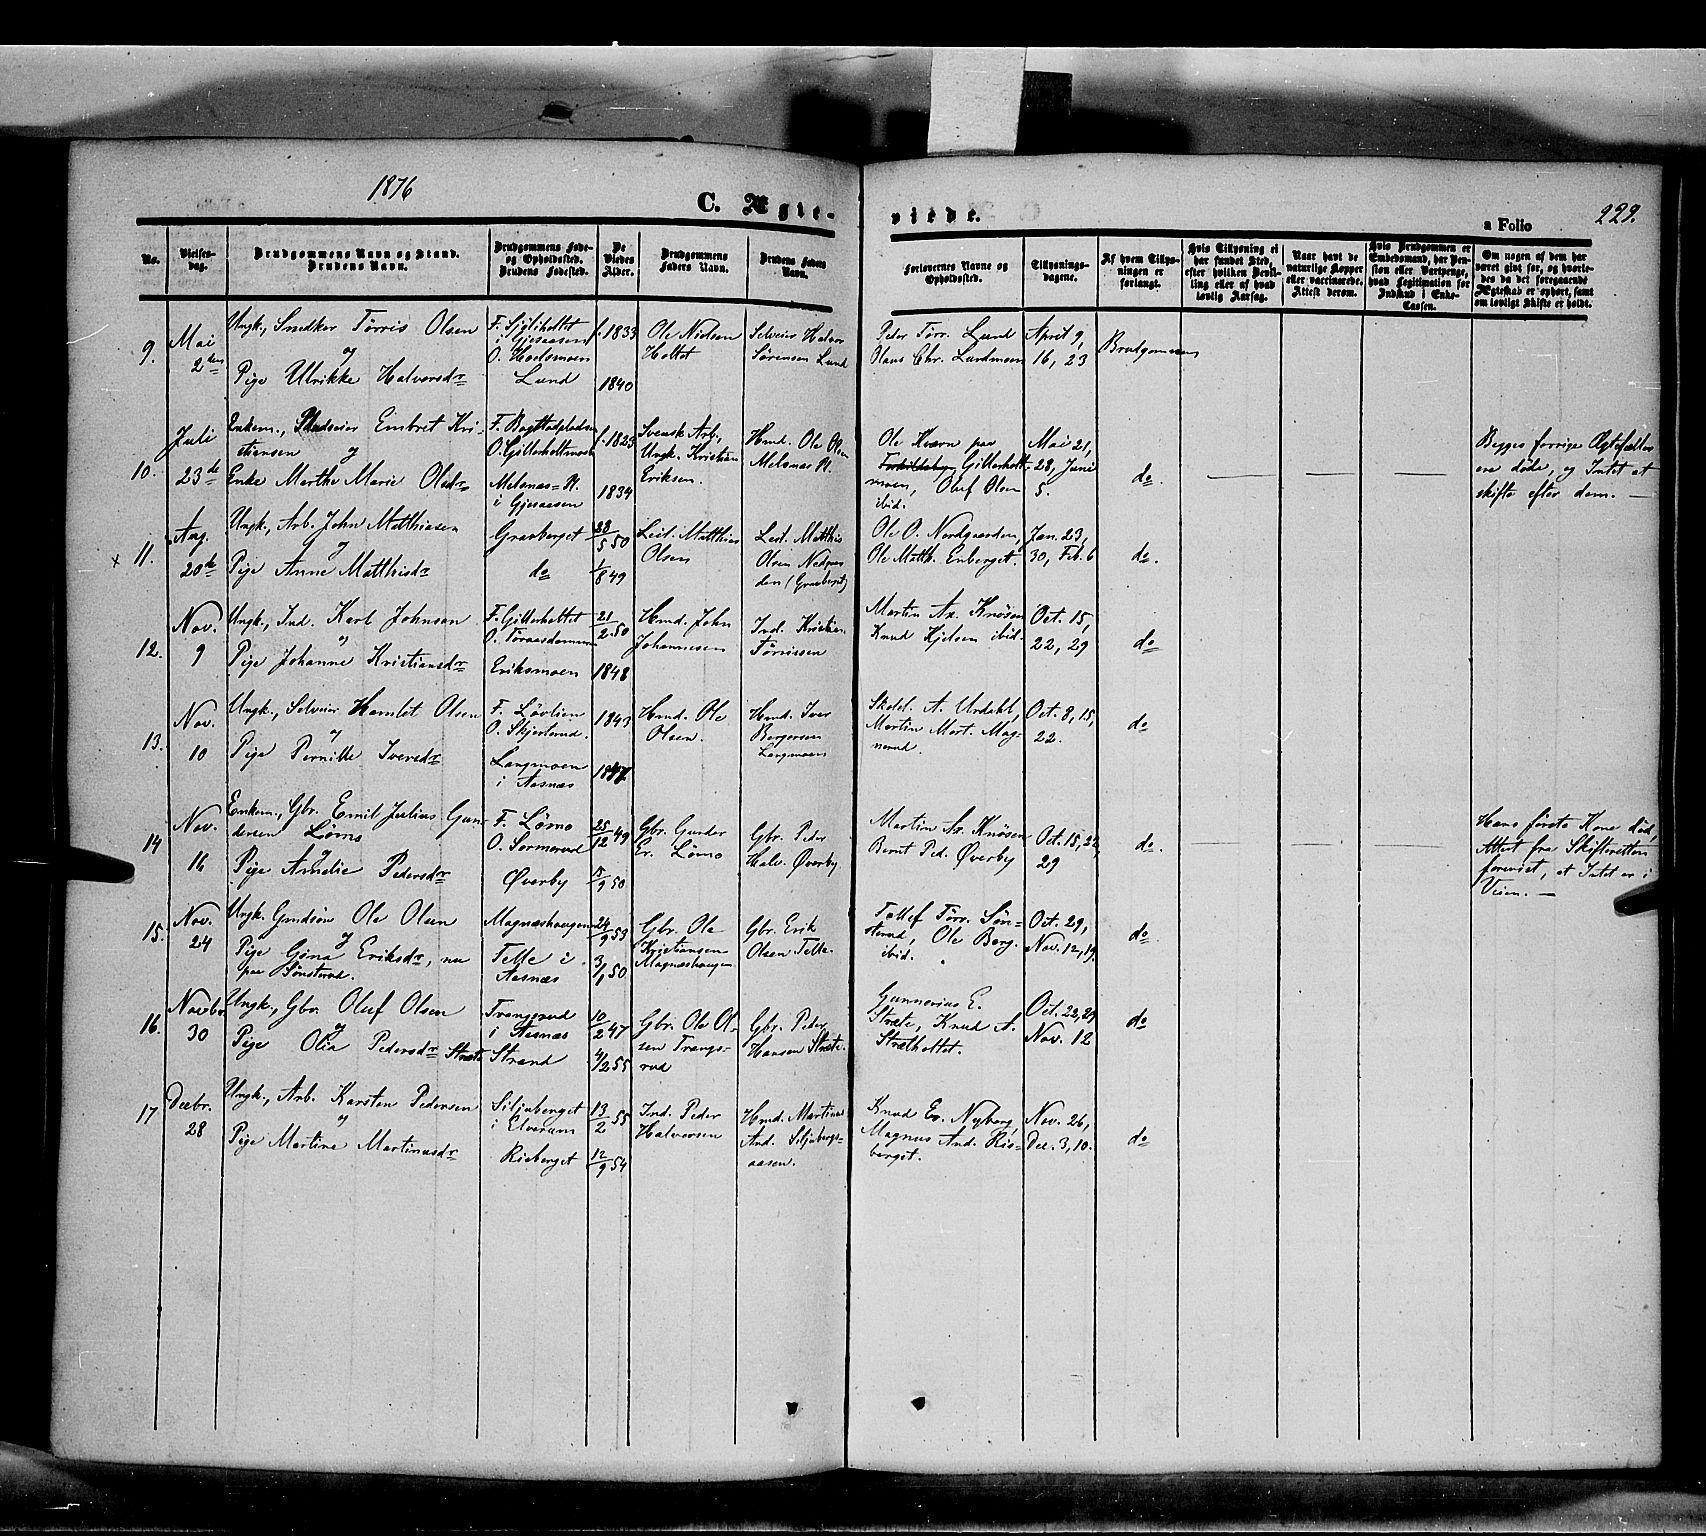 1876
C. Ægte-
viede.
a Folio
229.
No.
Vielses-
dag.
Brudgommens Navn og Stand.
Brudens Navn.
Brudgommens Føde-
og Opholdssted.
Brudens Fødested.
De
Viedes
Alder.
Brudgommens
Faders Navn.
Brudens Faders
Navn.
Forlovernes Navne og
Opholdssted.
Tillysnings-
dagene.
Af hvem Tillys-
ningen er
forlangt.
Hvis Tillysning ei
har fundet Sted,
efter hvilken Bevil-
ling eller af hvad
lovlig Aarsag.
Naar havt de
naturlige Kopper
eller vaccinerede.
Attest derom.
Hvis Brudgommen er
Embedsmand, har Pen-
sion eller Vartpenge,
hvad Legitimation for
Indskud i Enke-
Cassen.
Om nogen af dem har
været gift før, og hvorle-
des da det foregaaende
Ægteskab er ophørt, samt
om lovligt Skifte er holdt.
9.
Mai
2den
Ungk., Snedker Tørris Olsen
og
Pige Ulrikke Halversdr
F. Sjøliholtet
i Gjesaasen
O. Hoelsmoen
Lund
f. 1833
1840
Ole Nielsen
Holtet
Selveier Halvor
Sørensen Lund
Peder Tørr. Lund
Olaus Chr. Lundmoen
April 9,
16, 23
Brudgommen
10.
Juli
23de
Enkem., Pladseier Embret Kri-
stiansen og
Enke Marthe Marie Olsdr
F. Bagstadpladsen
O. Gitterholtmoen
Melsnæs-Pl.
i Gjesaasen
f. 1823
1834
Svensk Arb.,
Ungk. Kristian
Eriksen.
Hmd. Ole Olsen
Melsnæs Pl.
Ole Kværn paa
Gitterholt-
moen, Oluf Olsen
ibid.
Mai 21,
28, Juni
5.
do.
Begges forrige Ægtefæller
ere døde, og Intet at
skifte efter dem. —
× 11.
Aug.
20de
Ungk., Arb. John Matthiasen
og
Pige Anne Matthisdr
Gravberget
do
28/5 50
1/8 49
Leil. Matthias
Olsen
Leil. Matthis
Olsen Nedgaar-
den (Gravberget)
Ole O. Nordgaarden,
Ole Matth. Enberget.
Jan. 23,
30, Feb. 6
do.
12.
Nov.
9
Ungk., Ind. Karl Johnsen
og
Pige Johanne Kristiansdr
F. Gitterholtet
O.
Eriksmoen
21/2 50
1848
Hmd. John
Johannesen
Ind. Kristian
Tørrissen
Martin Ax. Knøsen
Knud Kjelsen ibid.
Oct. 15,
22, 29
do
13.
Nov.
10
Ungk., Selveier Hamlet Olsen
og
Pige Pernille Iversdr
F. Løvlien
O. Skjesterud.
Langmoen
i Aasnæs
1843
1847
Hmd. Ole
Olsen.
Hmd. Iver
Bergersen
Langmoen
Skolel. A. Urdahl,
Martin Mort. Mag-
nerud.
Oct. 8, 15,
22.
do
14
Nov.
16
Enkem., Gbr. Emil Julius Gun-
dersen Lømo
og
Pige Amelie Pedersdr
F. Lømo
O. Sormerud
Øverby
25/12 49
5/9 50
Gbr. Gunder
Er. Lømo
Gbr. Peder
Halv. Øverby
Martin Ax. Knøsen
Bernt Ped. Øverby
Oct. 15, 22,
29
do.
Hans første Kone død,
Attest fra Skifteretten
forevist, at Intet er i
Veien. —
15.
Nov.
24
Ungk. Gmdsøn Ole Olsen
og
Pige Gina Eriksdr, nu
paa Sønsterud.
Magnæshaugen
Telle i
Aasnæs
24/9 53
3/1 50
Gbr. Ole
Kristiansen
Magnæshaugen
Gbr. Erik
Olsen Telle
Tollef Tørr. Søn-
sterud, Ole Berg.
ibid.
Oct. 29,
Nov. 12, 19
do.
16.
Novbr
30
Ungk., Gbr. Oluf Olsen
og
Pige Olia Pedersdr Stræte
Trangsrud
i Aasnæs
Strand
10/2 47
4/2 55
Gbr. Ole Ol-
sen Trangs-
rud
Gbr. Peder
Hansen Stræte
Gunnerius E.
Stræte, Knud A.
Strætholtet.
Oct. 22, 29
Nov. 12
do
17
Decbr.
28
Ungk., Arb. Karsten Pedersen
og
Pige Martine Martinusdr
Siljuberget
i Elverum
Risberget
13/2 55
12/9 54
Ind. Peder
Halversen
Hmd. Martinus
And. Siljubergs-
aasen.
Knud Er. Nyberg,
Magnus And. Ris-
berget.
Nov. 26,
Dec. 3, 10.
do